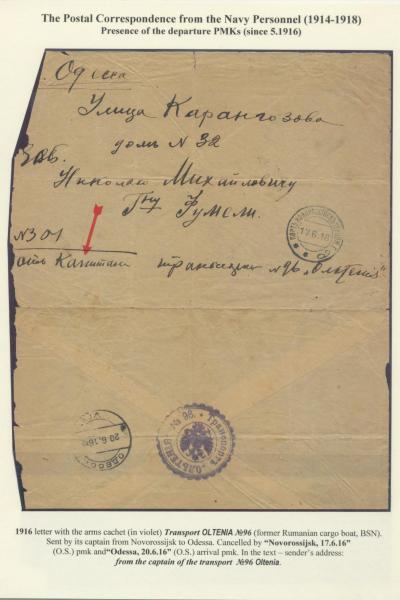 The Postal Correspondence from the Navy Personnel (1914-1918)
Presence of the departure PMKs (since 5.1916)
Одесса
Улица Карангозова
домъ N 32
Зав.
Николаю Михайловичу
Гну Фумели.
N301
отъ Капитана транспорта N96 „Олтенія"
17.6.16
20.6.16
ОДЕССА
Транспортъ „ОЛЬТЕНІЯ" № 96.
1916 letter with the arms cachet (in violet) Transport OLTENIA №96 (former Rumanian cargo boat, BSN).
Sent by its captain from Novorossijsk to Odessa. Cancelled by "Novorossijsk, 17.6.16"
(O.S.) pmk and"Odessa, 20.6.16" (O.S.) arrival pmk. In the text – sender's address:
from the captain of the transport №96 Oltenia.